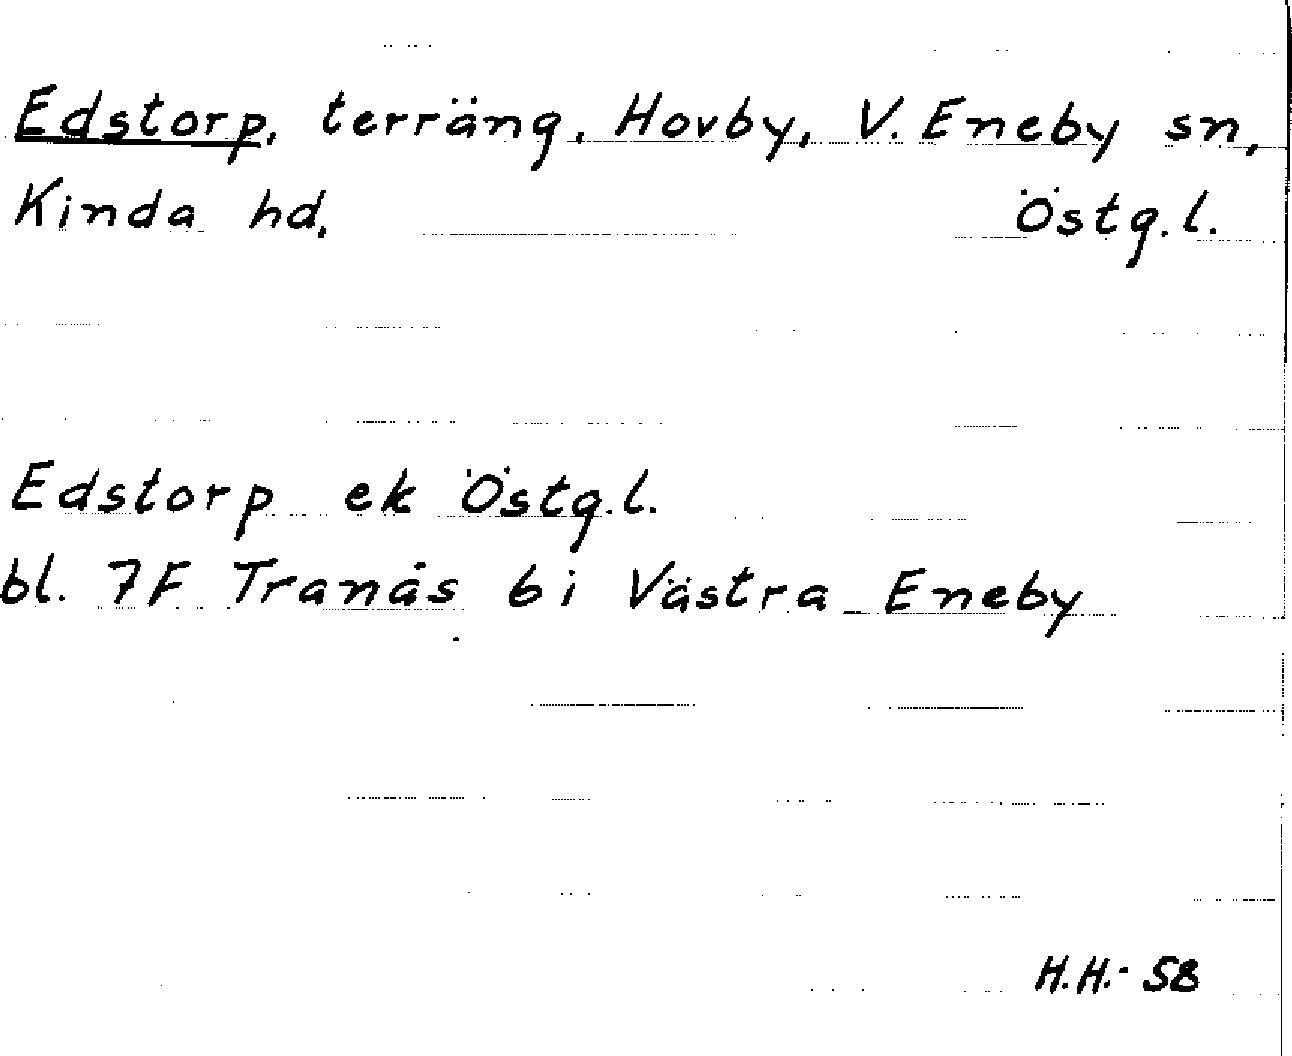 Edstorp, terräng, Hovby, V. Eneby sn,
Kinda hd, Östg. l.
Edstorp ek Östg. l.
bl. 7F Tranås 6i Västra Eneby
H.H.- 58